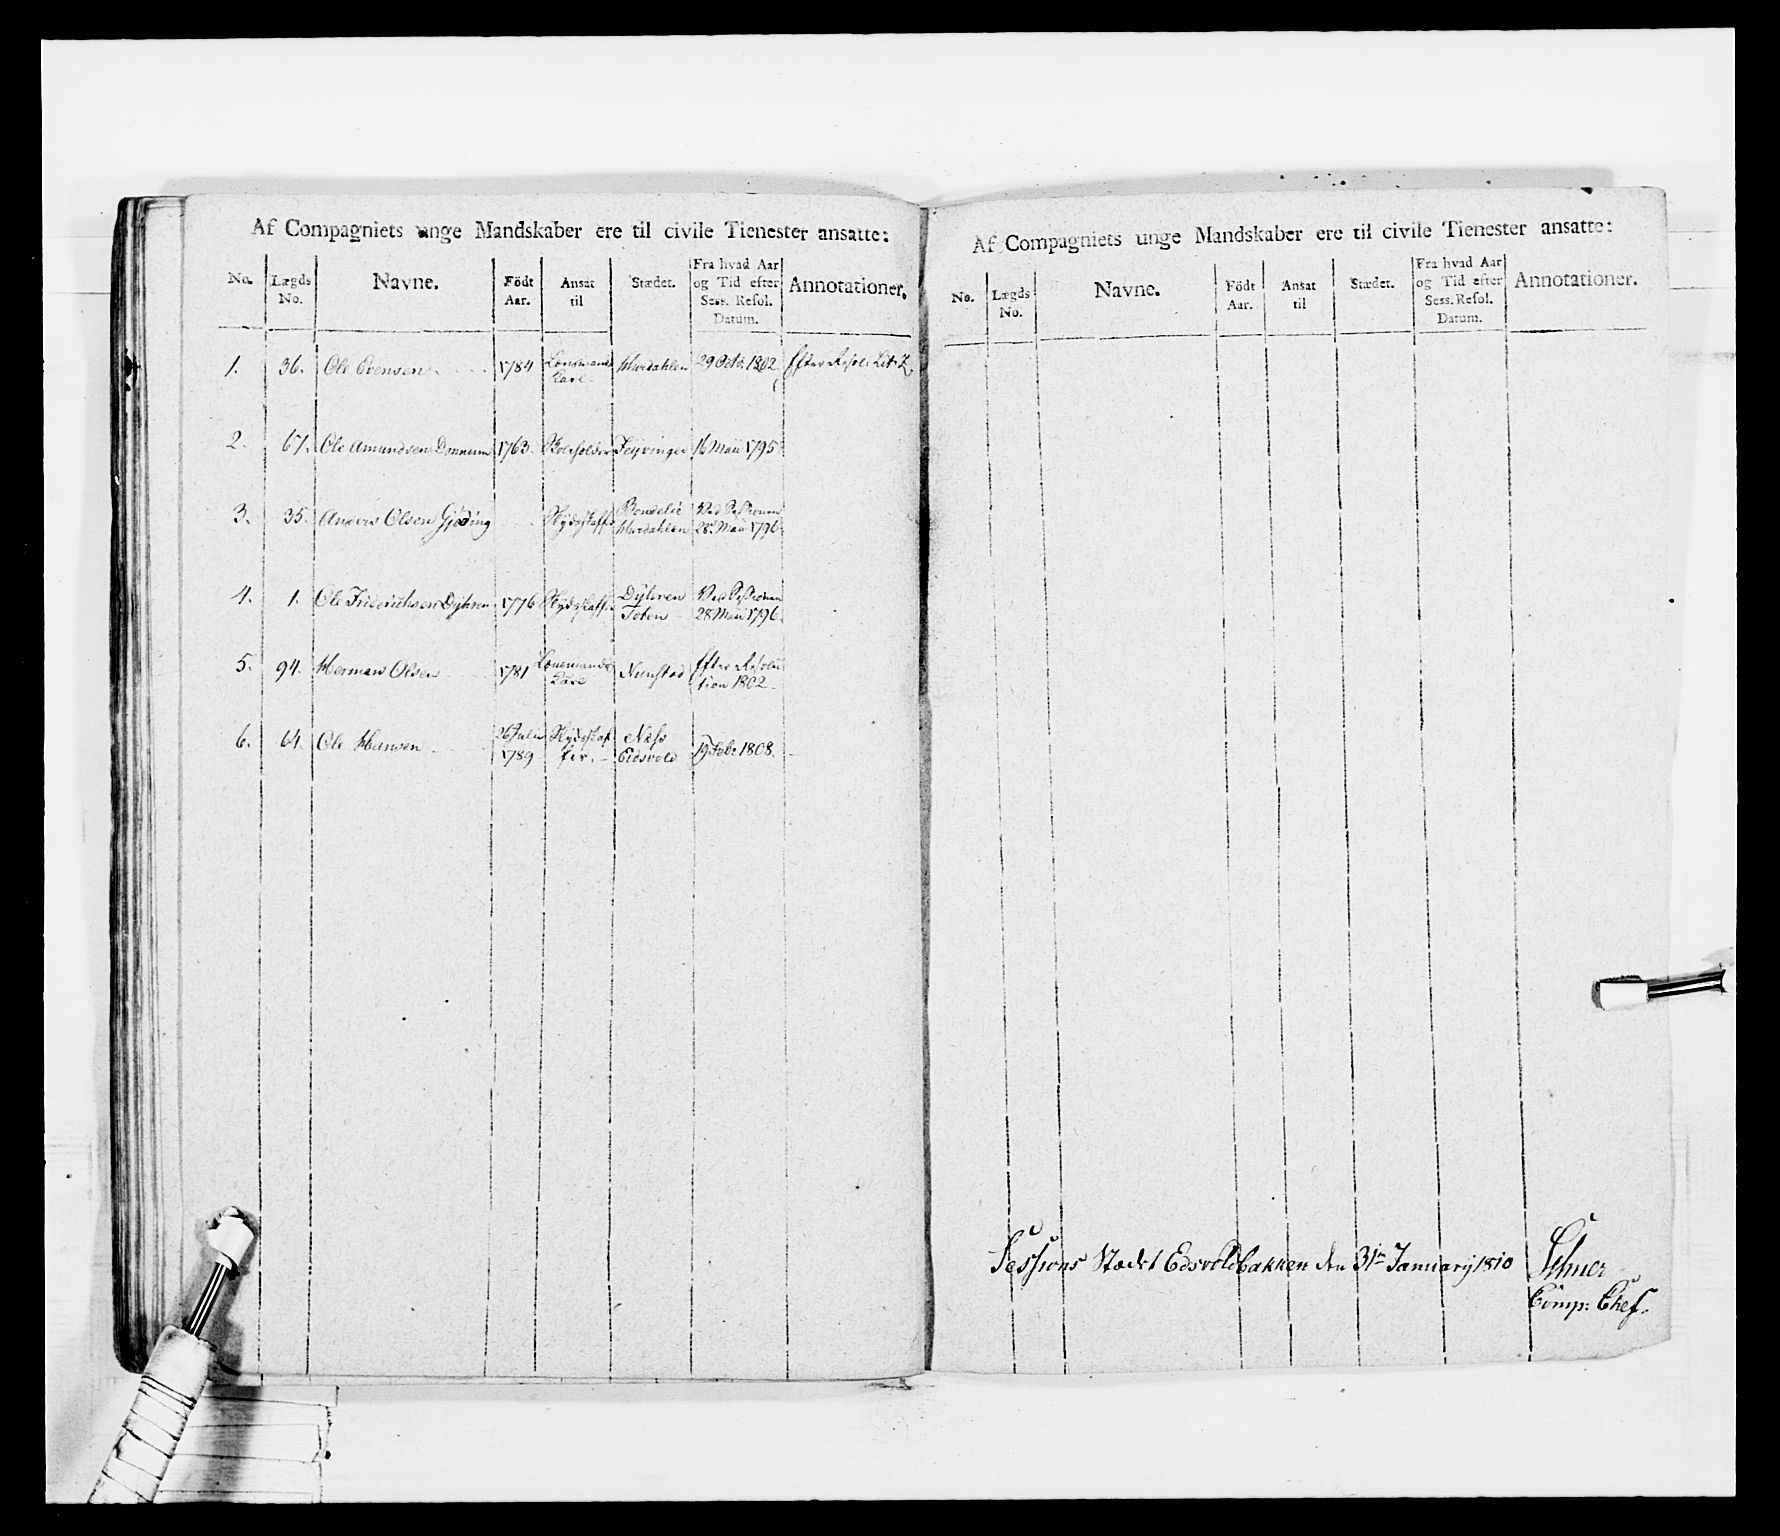 Af Compagniets unge Mandskaber ere til civile Tienester ansatte:
No. Lægds No. Navne. Födt Aar. Ansat til Stædet. Fra hvad Aar og Tid efter Sess. Resol. Datum. Annotationer.
1. 36. Ole Evensen 1784 Lensmands Karl Hurdahlen 29 Octb. 1802 Efter Resol. Litr. Z
2. 67. Ole Amundsen Donnum 1763 Skoleholder Feyringen 16 Maii 1795
3. 35. Anders Olsen Gjøding Skydsskaffer Bondelie Hurdahlen Ved Sessionen 28 Maii 1796
4. 1. Ole Friderichsen Dyhren 1776 Skydsskaffer Dyhren Toten Ved Sessionen 28 Maii 1796
5. 94. Herman Olsen 1781 Lensmands Karl Efter Resolution 1802
6. 64. Ole Hansen 26 Julii 1789 Skydsskaffer Næss Eidsvold 19 Feb: 1808
Af Compagniets unge Mandskaber ere til civile Tienester ansatte:
No. Lægds No. Navne. Födt Aar. Ansat til Stædet. Fra hvad Aar og Tid efter Sess. Resol. Datum. Annotationer.
Sessions Stædet Edsvoldbakken den 31te January 1810
Comp: Chef.